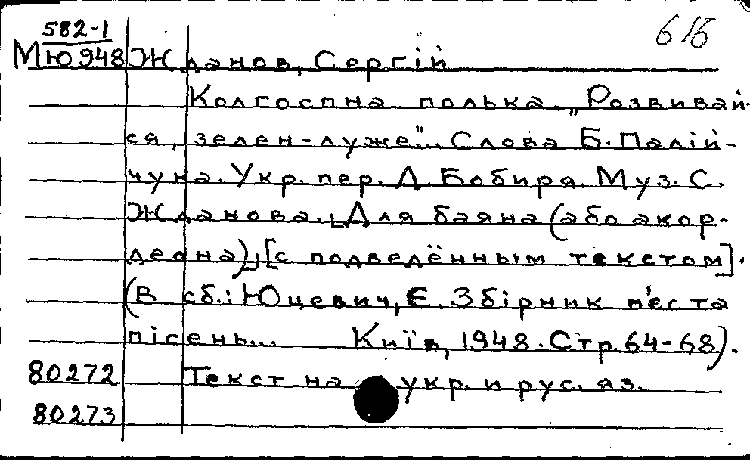 582-1
616
Мю948 Жданов, Сергій
Колгоспна полька. „Розвивай-
ся, зелен-луже“... Слова Б. Палій-
чука. Укр. пер. Д. Бобиря. Муз. С.
Жданова. [Для баяна (або акор-
деона)], [с подведённым текстом].
(В сб.: Юцевич, Є. Збірник п'єс та
пісень... Київ, 1948. Стр. 64-68).
80272 Текст на укр. и рус. яз.
80273